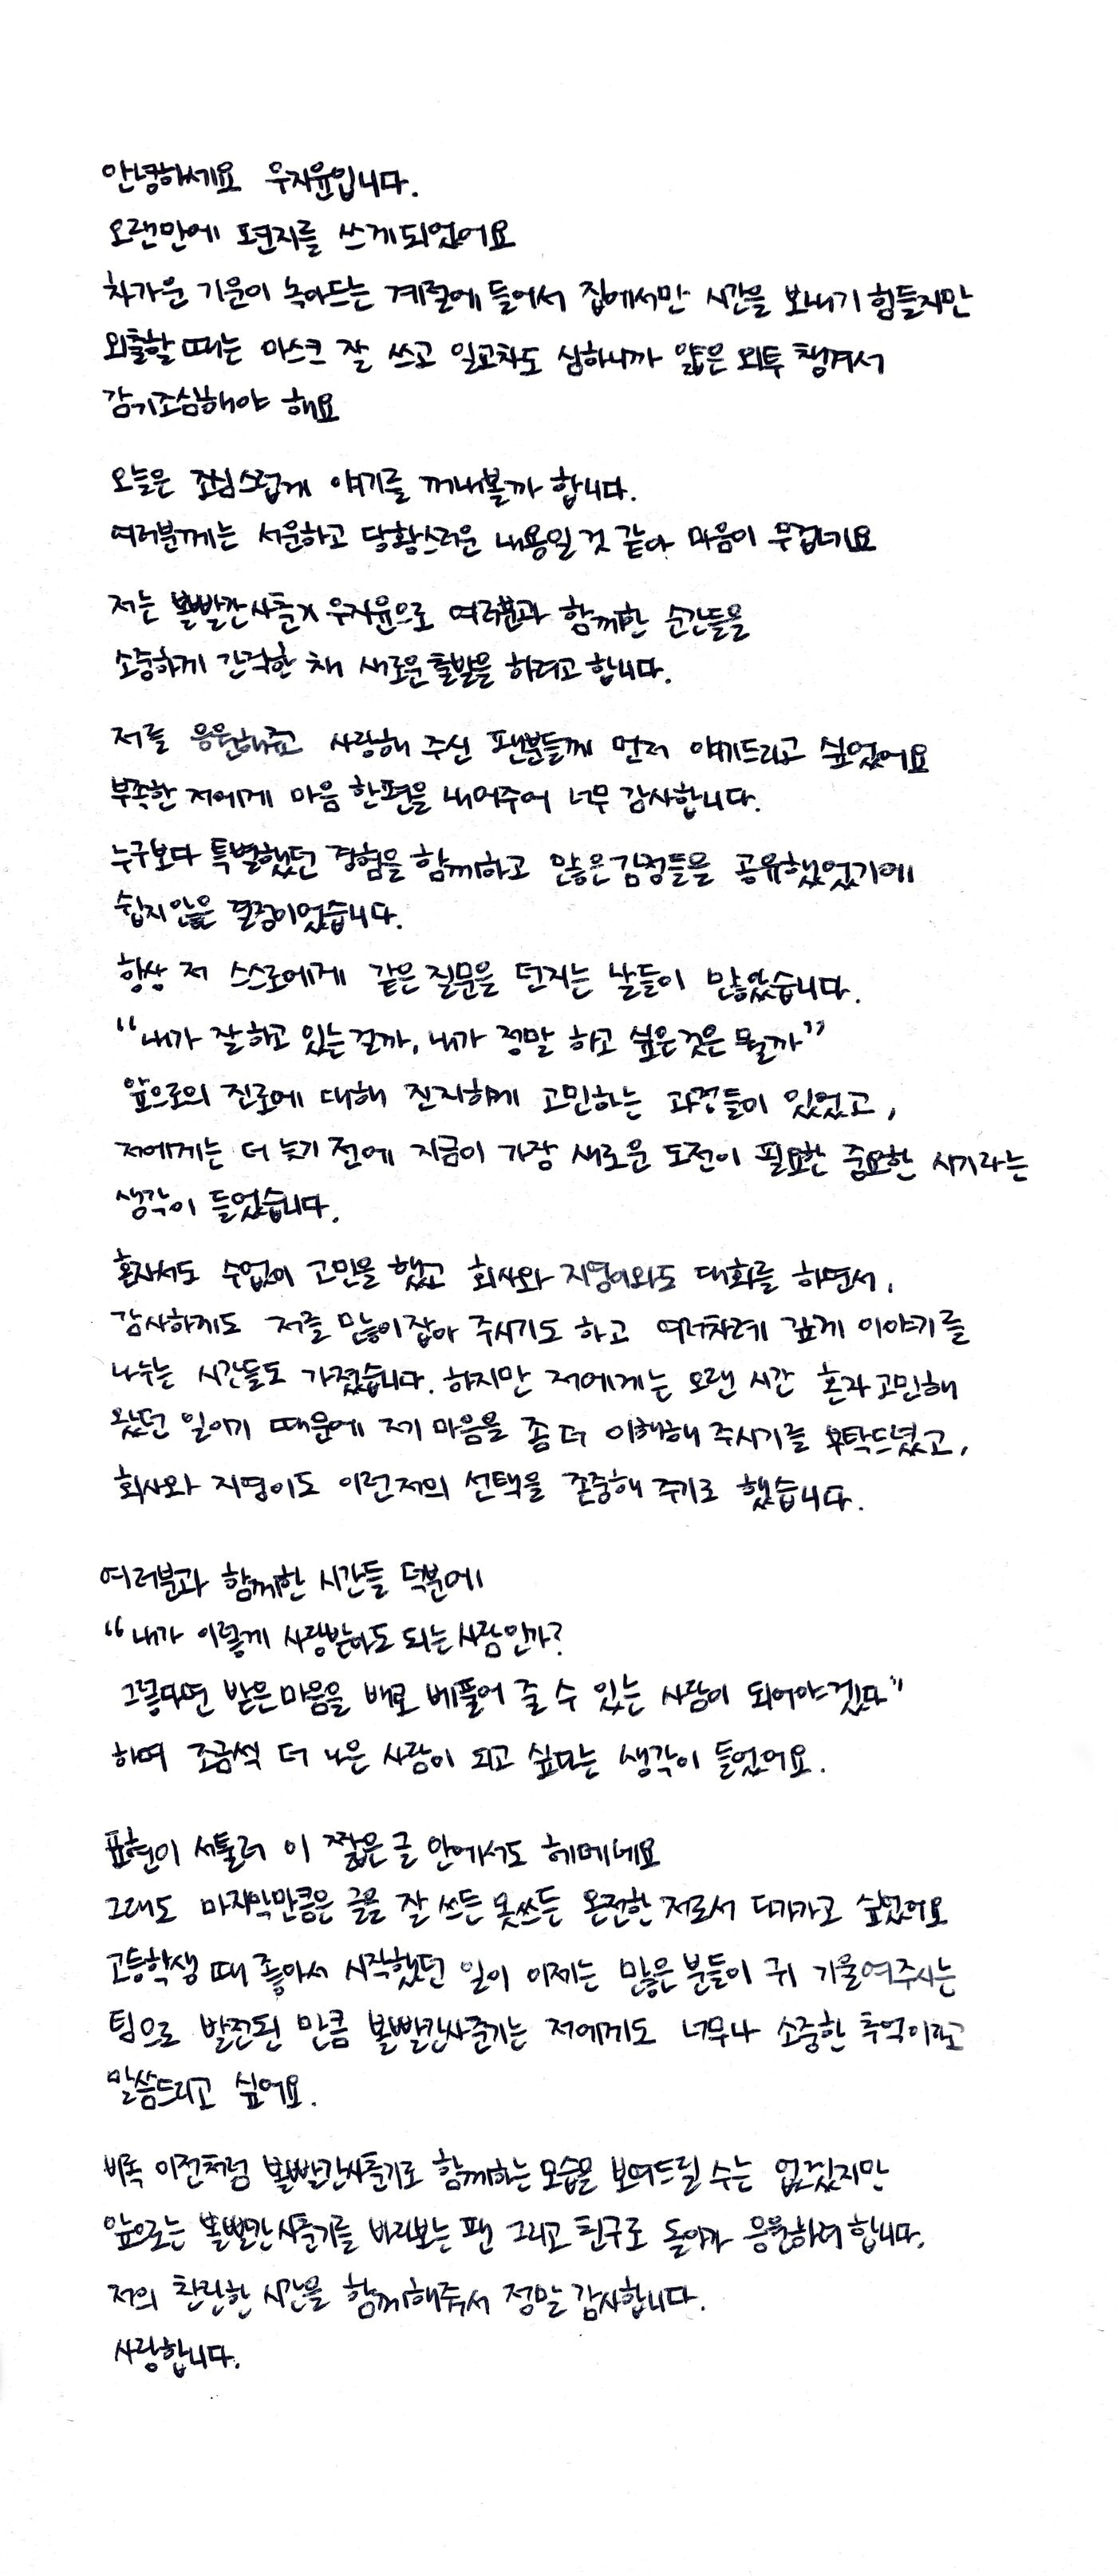 안녕하세요 우지윤입니다.
오랜만에 편지를 쓰게되었어요
차가운 기운이 녹아드는 계절에 들어서 집에서만 시간을 보내기 힘들지만
외출할 때는 마스크 잘 쓰고 일교차도 심하니까 얇은 외투 챙겨서
감기조심해야 해요
오늘은 조심스럽게 얘기를 꺼내볼까 합니다.
여러분께는 서운하고 당황스러운 내용일 것 같아 마음이 무겁네요
저는 볼빨간사춘기 우지윤으로 여러분과 함께한 순간들을
소중하게 간직한 채 새로운 출발을 하려고 합니다.
저를 응원해주고 사랑해 주신 팬분들께 먼저 얘기드리고 싶었어요
부족한 저에게 마음 한편을 내어주어 너무 감사합니다.
누구보다 특별했던 경험을 함께하고 많은 감정들을 공유했었기에
쉽지않은 결정이었습니다.
항상 저 스스로에게 같은 질문을 던지는 날들이 많았습니다.
“내가 잘하고 있는걸까, 내가 정말 하고 싶은것은 뭘까”
앞으로의 진로에 대해 진지하게 고민하는 과정들이 있었고,
저에게는 더 늦기 전에 지금이 가장 새로운 도전이 필요한 중요한 시기라는
생각이 들었습니다.
혼자서도 수없이 고민을 했고 회사와 지영이와도 대화를 하면서,
감사하게도 저를 많이 잡아 주시기도 하고 여러차례 깊게 이야기를
나누는 시간들도 가졌습니다. 하지만 저에게는 오랜 시간 혼자 고민해
왔던 일이기 때문에 제 마음을 좀 더 이해해 주시기를 부탁드렸고,
회사와 지영이도 이런저의 선택을 존중해 주기로 했습니다.
여러분과 함께한 시간들 덕분에
“내가 이렇게 사랑받아도 되는 사람인가?
그렇다면 받은마음을 배로 베풀어 줄 수 있는 사람이 되어야겠다”
하며 조금씩 더 나은 사람이 되고 싶다는 생각이 들었어요.
표현이 서툴러 이 짧은 글 안에서도 헤메네요
그래도 마지막만큼은 글을 잘 쓰든 못쓰든 온전한 저로서 다가가고 싶었어요
고등학생 때 좋아서 시작했던 일이 이제는 많은 분들이 귀 기울여주시는
팀으로 발전된 만큼 볼빨간사춘기는 저에게도 너무나 소중한 추억이라고
말씀드리고 싶어요.
비록 이전처럼 볼빨간사춘기로 함께하는 모습을 보여드릴 수는 없겠지만
앞으로는 볼빨간사춘기를 바라보는 팬 그리고 친구로 돌아가 응원하려 합니다.
저의 찬란한 시간을 함께해줘서 정말 감사합니다.
사랑합니다.